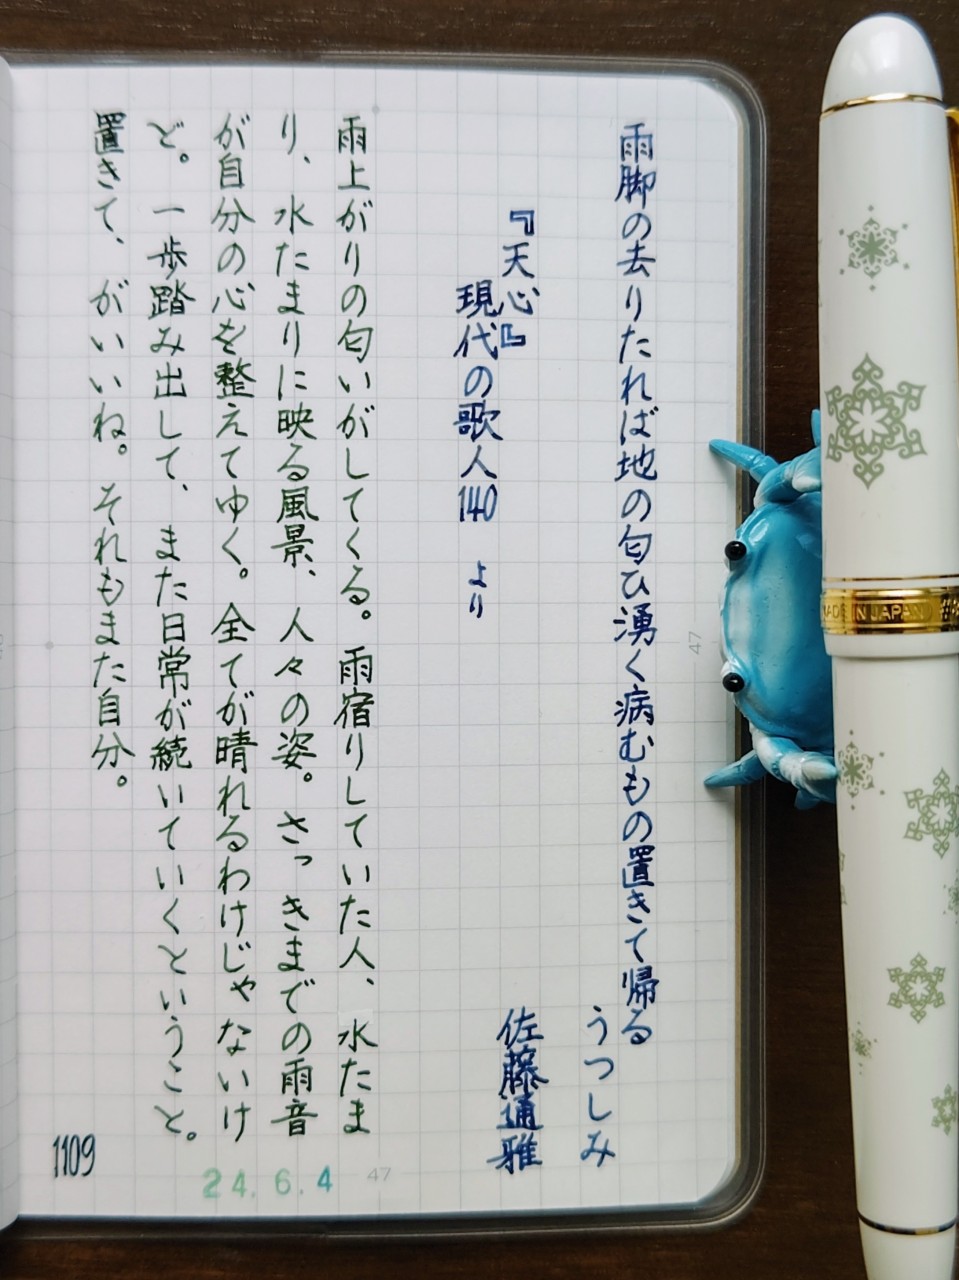 雨脚の去りたれば地の匂ひ湧く病むもの置きて帰る
うつしみ
佐藤通雅
『天心』
現代の歌人140 より
雨上がりの匂いがしてくる。雨宿りしていた人、水たま
り、水たまりに映る風景、人々の姿。さっきまでの雨音
が自分の心を整えてゆく。全てが晴れるわけじゃないけ
ど。一歩踏み出して、また日常が続いていくということ。
置きて、がいいね。それもまた自分。
1109
24.6.4
47
47
MADE IN JAPAN